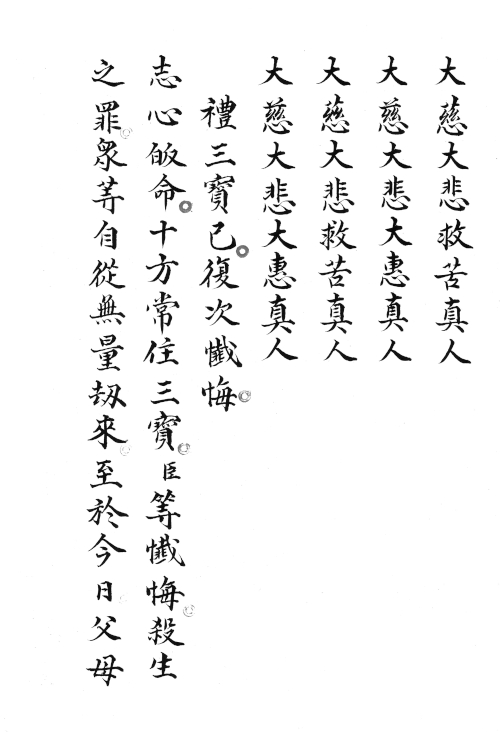 大慈大悲救苦真人
大慈大悲大惠真人
大慈大悲救苦真人
大慈大悲大惠真人
禮三寳已復次懴悔
志心皈命十方常住三寳臣等懴悔殺生
之罪衆等自從無量刼來至於今日父母